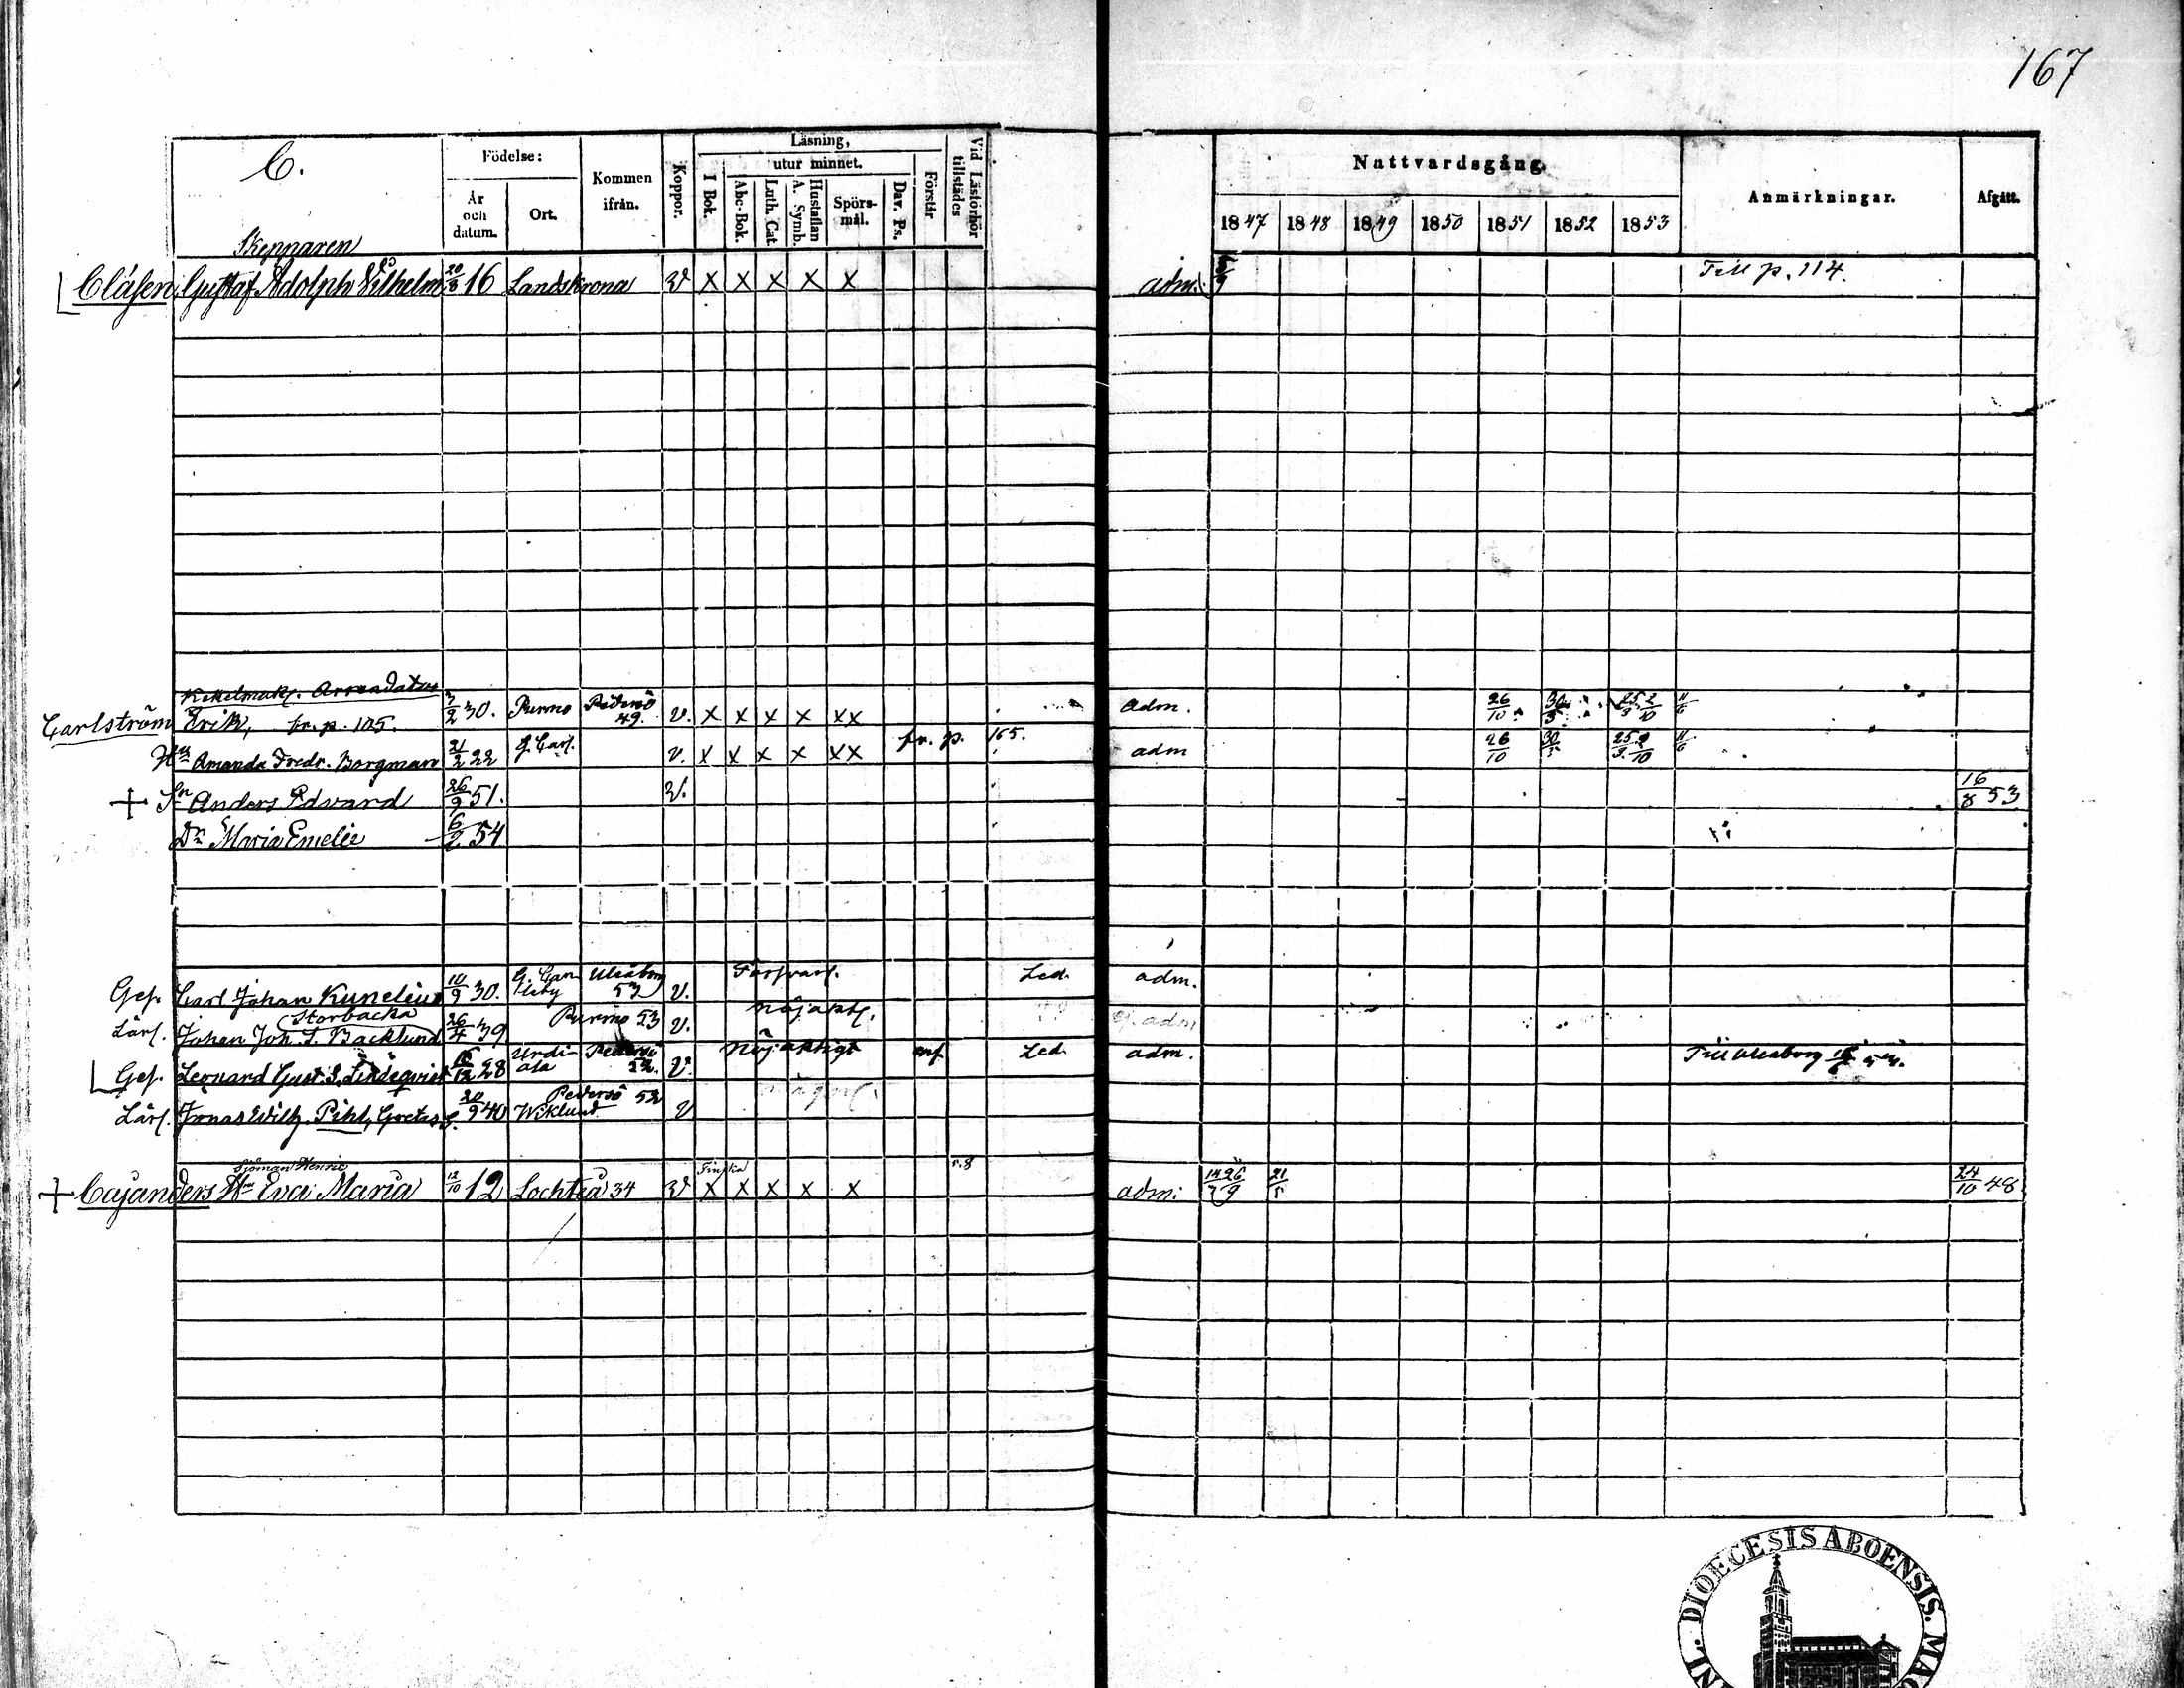 167
C.
Födelse:
År och datum.
Ort.
Kommen ifrån.
Koppor.
Läsning,
utur minnet.
I Bok.
Abc-Bok.
Luth. Cat.
A. Symb. Hustaflan
Spörs-mål.
Dav. Ps.
Förstår
Vid Läsförhör tillstädes
Nattvardsgång.
1847 1848 1849 1850 1851 1852 1853
Anmärkningar.
Afgått.
Skepparen
Clásen, Gustaf Adolph Vilhelm 20/3 16 Landskrona v x x x x x adm. Till p. 114.
Arrendator
Carlström Erik, fr. p. 105. 2/2 30. Purmo Pedersö 49. v. x x x x xx adm. 26/10 30/5 25/3 2/10
Hu Amanda Fredr. Borgman 21/2 22 G. Carl. v. x x x x xx fr. p. 165. adm 26/10 30/5 25/3 2/10
+ Sn Anders Edvard 26/9 51. v. 16/8 53
Dr Maria Emelie 6/2 54
Ges. Carl Johan Kunelius 10/9 30. G. Carleby Uleåborg 53 v. Försvarl. Led. adm.
Storbacka
Lärl. Johan Joh. S. Backlund 26/4 39 Purmo 53 v. Nöjaktl. ej. adm
Ges. Leonard Gust. S. Lindeqvist 12 28 Urdiala Pedersö 52. v. Nöjaktigt Led. adm. Till Uleåborg
Lärl. Jonas Wilh. Pihl, Gretas S. 20/9 40 Wiklund Pedersö 52 v
Sjöman Henric
+ Cajanders Hu Eva Maria 12/10 12 Lochteå 34 v Finska x x x x x adm: 14/3 26/9 21/5 24/10 48
DIOECESIS ABOENSIS.